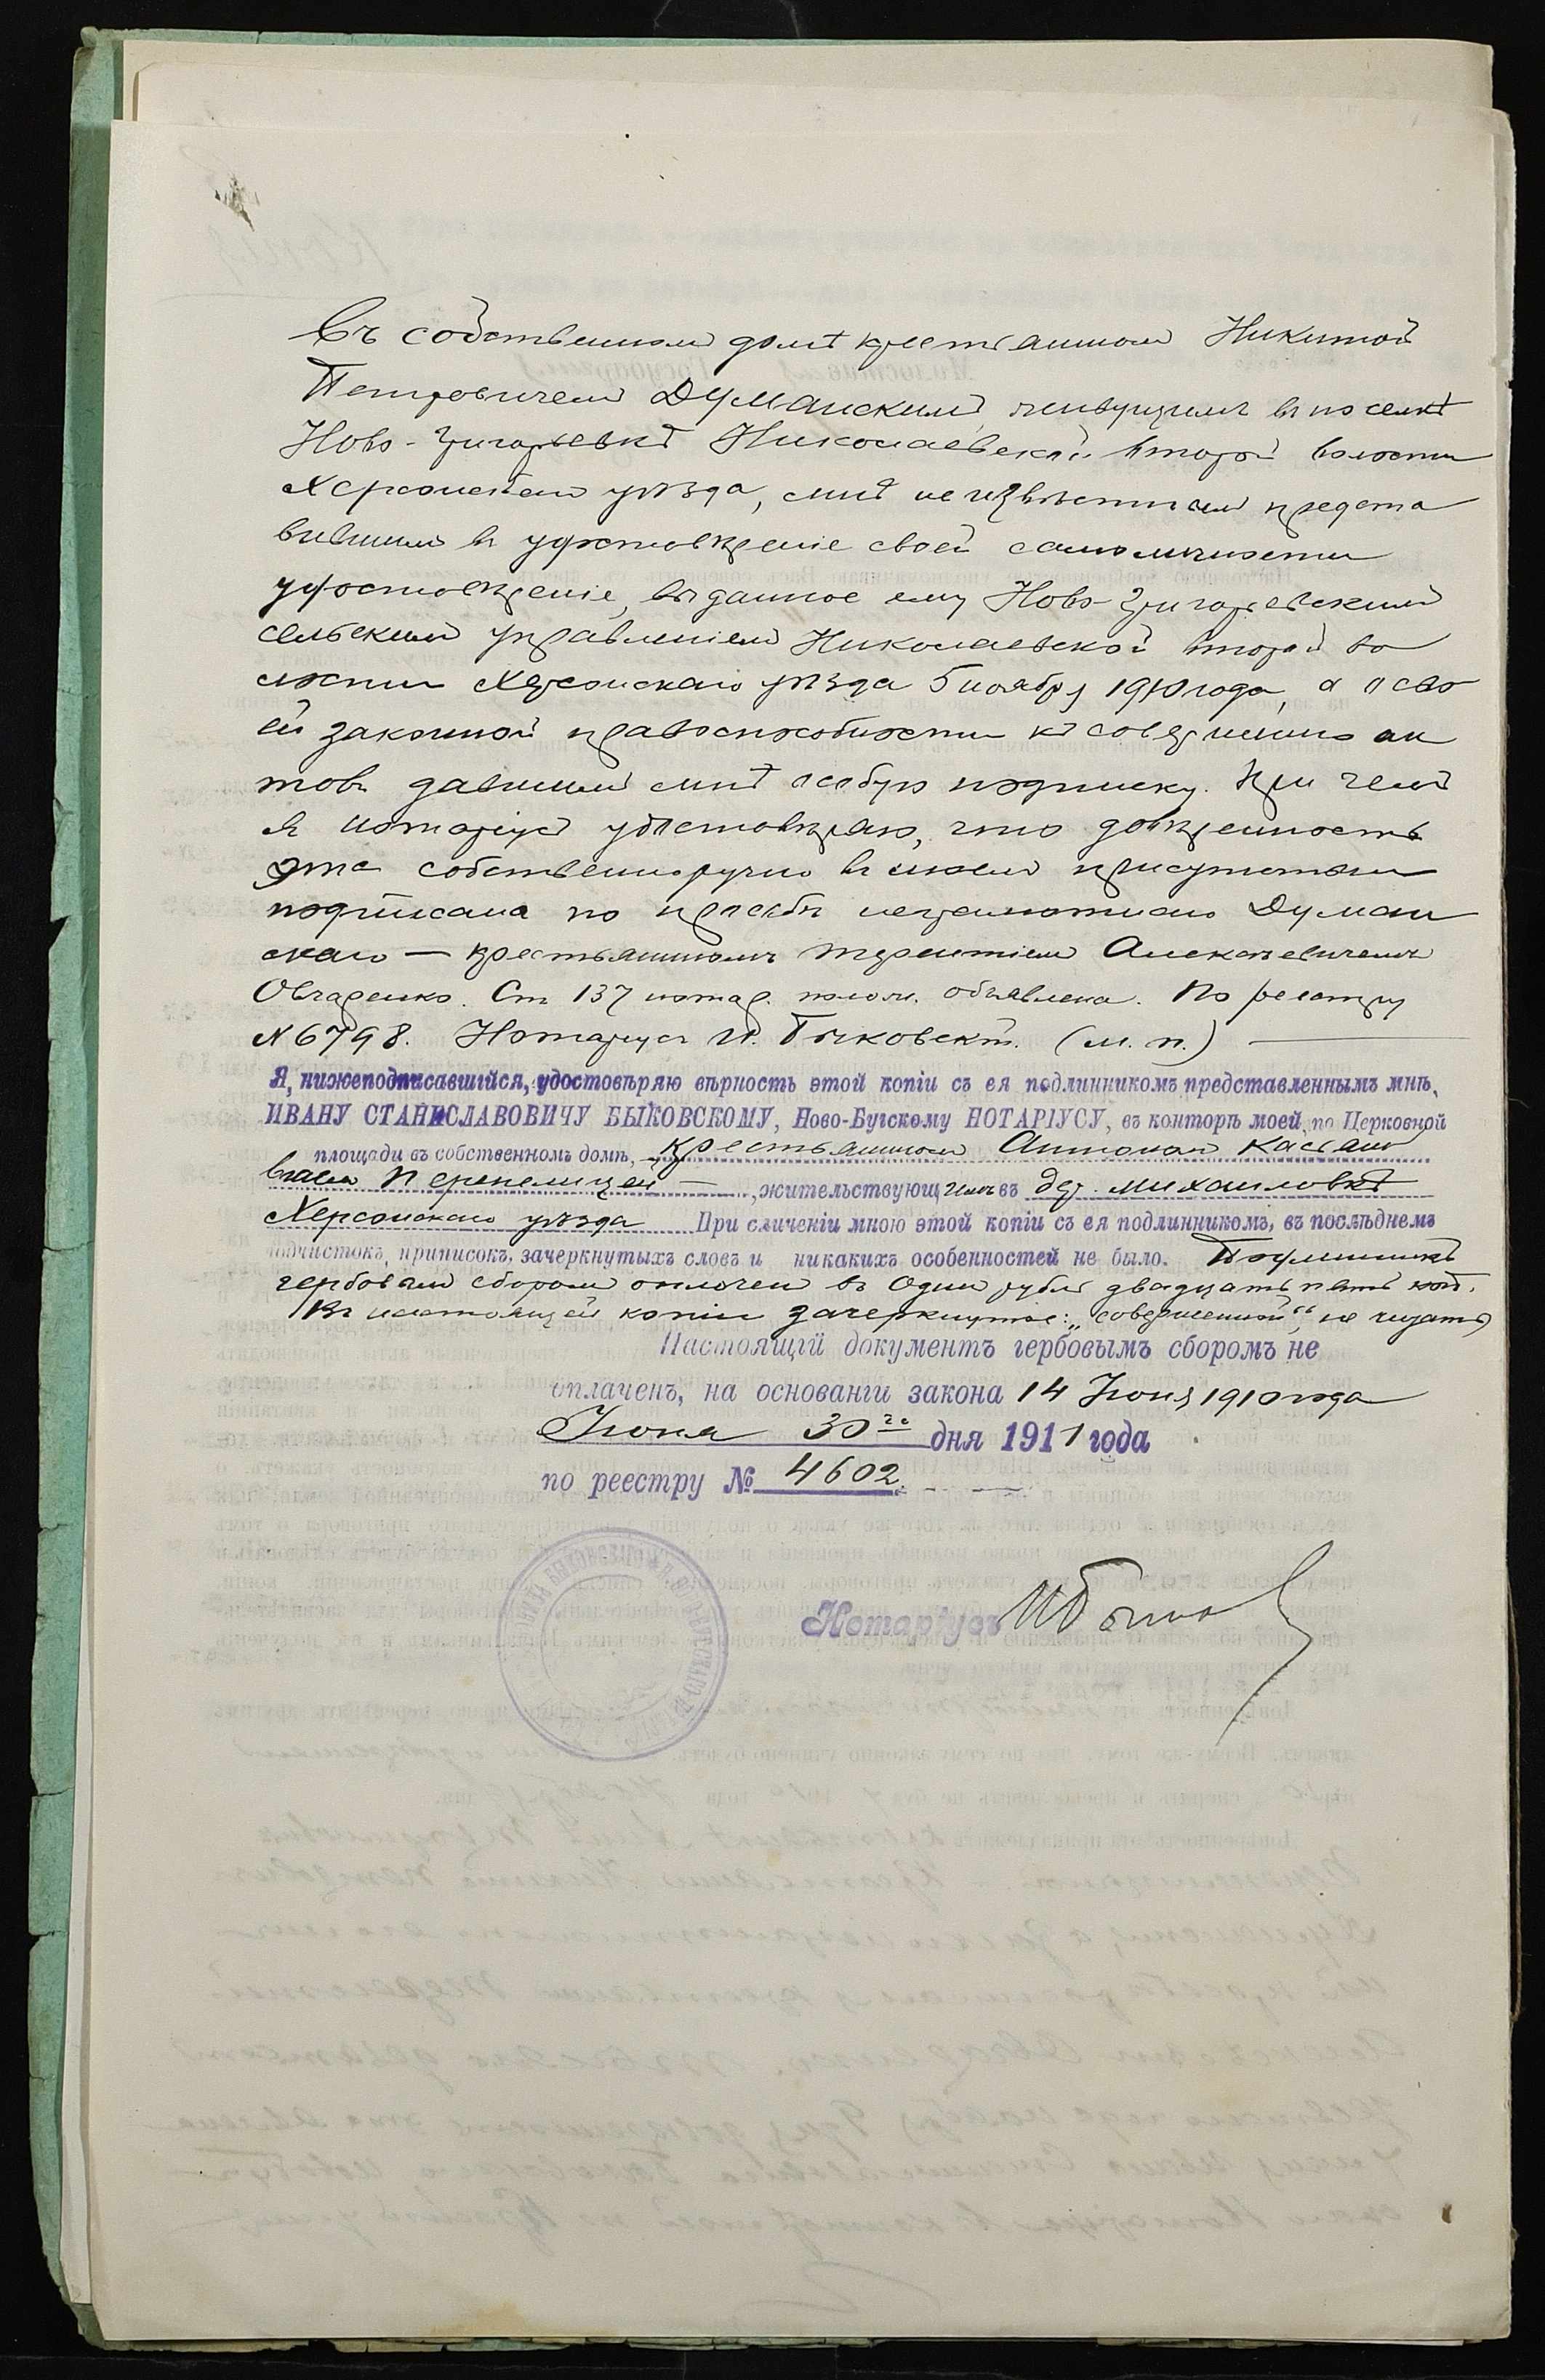 въ собственномъ домѣ крестьяниномъ Никитой
Петровичемъ Думанскимъ, живущимъ въ поселкѣ
Ново-Григорьевкѣ Николаевской второй волости
Херсонскаго уѣзда, мнѣ неизвѣстнымъ предста
вившимъ въ удостовѣреніе своей самоличности
удостовѣреніе, выданное ему Ново-Григорьевскимъ
сельскимъ управленіемъ Николаевской второй во
лости Херсонскаго уѣзда 5 ноября 1910 года, а о сво
ей законной правоспособности къ совершенію ак
товъ давшимъ мнѣ особую подписку. При чемъ
я нотаріусъ удостовѣряю, что довѣренность
эта собственноручно въ моемъ присутствіи
подписана по просьбѣ неграмотнаго Думан
скаго — крестьяниномъ Терентіемъ Алексѣевичемъ
Овчаренко. Ст. 137 нотар. полож. объявлена. По реестру
№ 6798. Нотаріусъ И. Быковскій. (м. п.) —
Я, нижеподписавшійся, удостовѣряю вѣрность этой копіи съ ея подлинникомъ представленнымъ мнѣ,
ИВАНУ СТАНИСЛАВОВИЧУ БЫКОВСКОМУ, Ново-Бугскому НОТАРІУСУ, въ конторѣ моей, по Церковной
площади въ собственномъ домѣ, крестьяниномъ Антономъ Касьяно
вичемъ Перепелицей — , жительствующимъ въ дер. Михайловкѣ
Херсонскаго уѣзда При сличеніи мною этой копіи съ ея подлинникомъ, въ послѣднемъ
подчистокъ, приписокъ, зачеркнутыхъ словъ и никакихъ особенностей не было. Подлинникъ
гербовымъ сборомъ оплоченъ въ Одинъ рубль двадцать пять коп.
Въ настоящей копіи зачеркнутое: „совершенной“, не читать
Настоящій документъ гербовымъ сборомъ не
оплаченъ, на основаніи закона 14 Іюня 1910 года
Іюня 30го дня 1911 года
по реестру № 4602.
Нотаріусъ